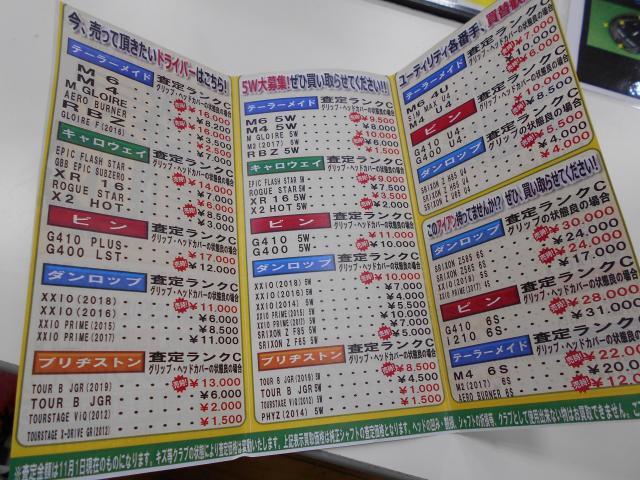 今、売って頂きたいドライバーはこちら!
テーラーメイド
査定ランクC
グリップ・ヘッドカバーの状態良の場合
M 6
M 4
M GLOIRE
AERO BURNER
RBZ
GLOIRE F(2016)
¥16,000
キャロウェイ
査定ランクC
グリップ・ヘッドカバーの状態良の場合
EPIC FLASH STAR
GBB EPIC SUBZERO
XR 16
ROGUE STAR
X2 HOT
¥14,000
¥7,000
¥6,000
¥8,500
¥3,000
ピン
査定ランクC
グリップ・ヘッドカバーの状態良の場合
G410 PLUS
¥17,000
G400 LST
¥12,000
ダンロップ
査定ランクC
グリップ・ヘッドカバーの状態良の場合
XXIO(2018)
¥11,000
XXIO(2016)
¥6,000
XXIO PRIME(2015)
¥8,500
XXIO PRIME(2017)
¥11,000
ブリヂストン
査定ランクC
グリップ・ヘッドカバーの状態良の場合
TOUR B JGR(2019)
¥13,000
TOUR B JGR
¥6,000
TOURSTAGE ViQ(2012)
¥2,000
TOURSTAGE X-DRIVE GR(2012)
¥1,500
5W大募集!ぜひ買い取らせてください!!
テーラーメイド
査定ランクC
グリップ・ヘッドカバーの状態良の場合
M6 5W
¥9,500
M4 5W
¥8,200
M GLOIRE 5W
¥10,000
M2(2017) 5W
¥6,000
RBZ 5W
¥2,500
キャロウェイ
査定ランクC
グリップ・ヘッドカバーの状態良の場合
EPIC FLASH STAR 5W
¥9,000
ROGUE STAR 5W
¥7,500
XR 16 5W
¥3,500
X2 HOT 5W
¥2,000
ピン
査定ランクC
グリップ・ヘッドカバーの状態良の場合
G410 5W
¥11,000
G400 5W
¥10,000
ダンロップ
査定ランクC
グリップ・ヘッドカバーの状態良の場合
XXIO(2018) 5W
¥10,000
XXIO(2016) 5W
¥7,000
XXIO(2014) 5W
¥4,000
XXIO PRIME(2015) 5W
¥5,500
XXIO PRIME(2017) 5W
¥7,000
SRIXON Z F85 5W
¥10,000
SRIXON Z F65 5W
¥5,000
ブリヂストン
査定ランクC
グリップ・ヘッドカバーの状態良の場合
TOUR B JGR(2019) 5W
¥8,500
TOUR B JGR 5W
¥4,000
TOURSTAGE ViQ(2012) 5W
¥1,000
PHYZ(2014) 5W
¥1,500
ユーティリティ各番手、買替歓
テーラーメイド
査定ランクC
グリップ・ヘッドカバーの状態良の場合
M6 4U
SIM MAX U4
M4 U4
ピン
査定ランクC
グリップ・ヘッドカバーの状態良の場合
G410 U4
¥10,500
G400 U4
¥8,000
ダンロップ
査定ランクC
グリップ・ヘッドカバーの状態良の場合
SRIXON Z H85 U4
SRIXON Z H65 U4
SRIXON Z U85 U4
¥4,000
このアイアン待ってませんか!?ぜひ、買い取らせてください!!
ダンロップ
査定ランクC
グリップの状態良の場合
SRIXON Z585 6S
¥30,000
SRIXON Z565 6S
¥24,000
¥24,000
¥17,000
ピン
査定ランクC
グリップの状態良の場合
G410 6S
¥28,000
I210 6S
¥31,000
テーラーメイド
査定ランクC
グリップの状態良の場合
M4 6S
¥22,0
M2(2017) 6S
¥20,0
AERO BURNER 6S
¥12,0
※査定金額は11月1日現在のものになります。キズ等クラブの状態により査定価格は変動いたします。上記表示買取価格は純正シャフトの査定価格となります。ヘッドの凹み・割損、シャフトの折損等、クラブとして使用出来ない物はお買取できません。